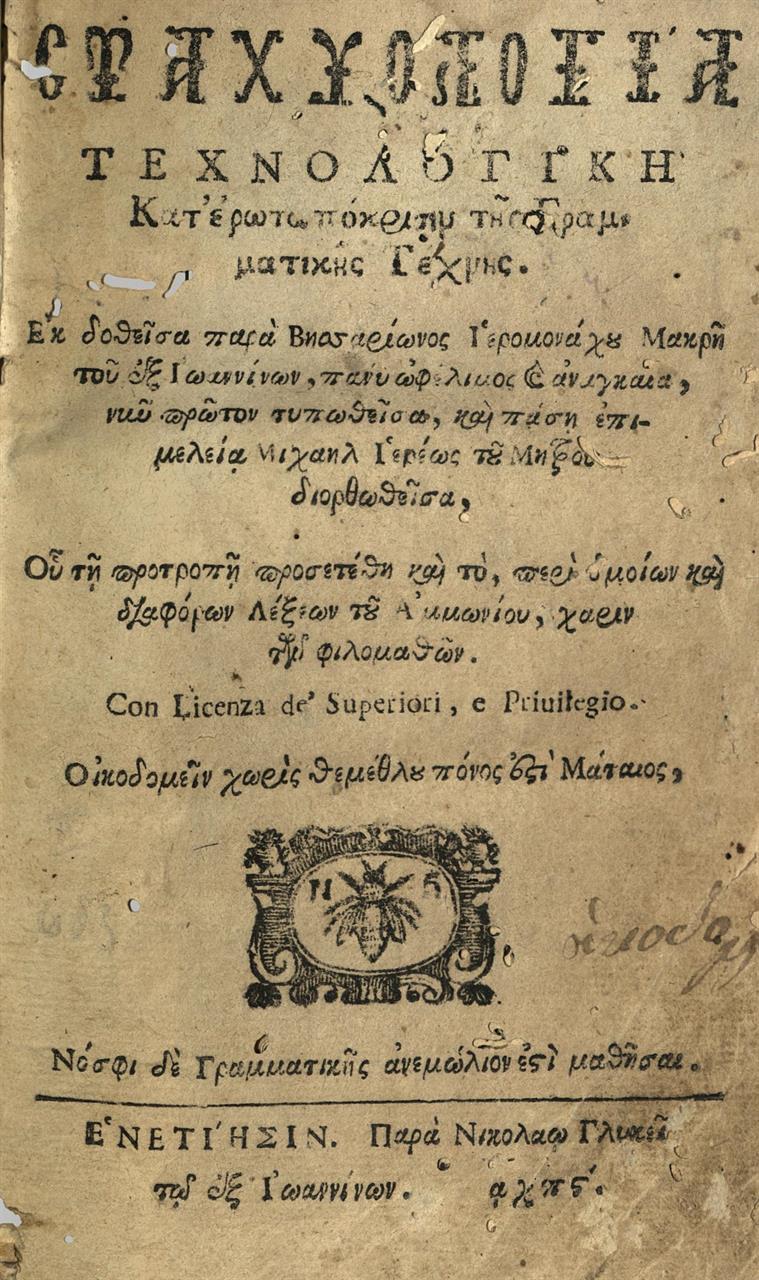 ΣΤΑΧΥΟΛΟΓΙΑ
ΤΕΧΝΟΛΟΓΙΚΗ
Κατ' ἐρωταπόκρισιν τῆς Γραμ-
ματικῆς Τέχνης.
Εκ δοθεῖσα παρὰ Βησσαρίωνος Ἱερομονάχου Μακρῆ
τοῦ ἐξ Ἰωαννίνων, πανυ ὠφέλιμος καὶ ἀναγκαία,
νιῦ πρῶτον τυπωθεῖσα, καὶ πάσῃ ἐπι-
μελείᾳ Μιχαηλ Ἱερέως τοῦ
διορθωθεῖσα,
Οὗ τῇ προτροπῇ προσετέθη καὶ τὸ, περὶ ὁμοίων καὶ
διαφόρων Λέξεων τοῦ Ἀμμωνίου, χαριν
τῶν φιλομαθῶν.
Con Licenza de' Superiori, e Priuilegio.
Οἰκοδομεῖν χωρὶς θεμέθλου πόνος ἐστὶ Μάταιος,
Ν
Νόσφι δὲ Γραμματικῆς ἀνεμώλιον ἐστὶ μαθῆσαι.
ἘΝΕΤΙΉΣΙΝ. Παρὰ Νικολαῳ Γλυκεῖ
τῷ ἐξ Ἰωαννίνων. ͵αχπϛ'.